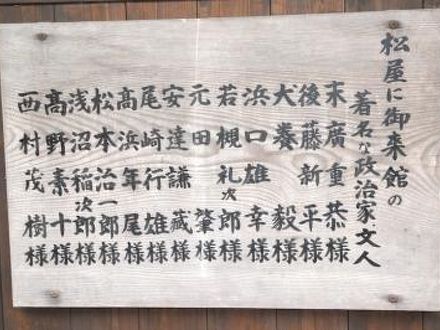 松屋に御来館の
著名な政治家文人
末廣重恭様
後藤新平様
犬養毅様
浜口雄幸様
若槻礼次郎様
元田肇様
安達謙藏様
尾崎行雄様
高浜年尾様
松本治一郎様
浅沼稲次郎様
高野素十様
西村茂樹様